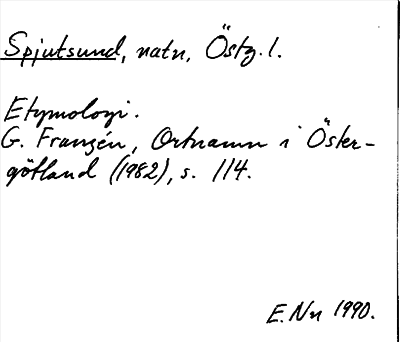 Spjutsund, natn, Östg. l.
Etymologi.
G. Franzén, Ortnamn i Öster-
götland (1982), s. 114.
E. Nn 1990.